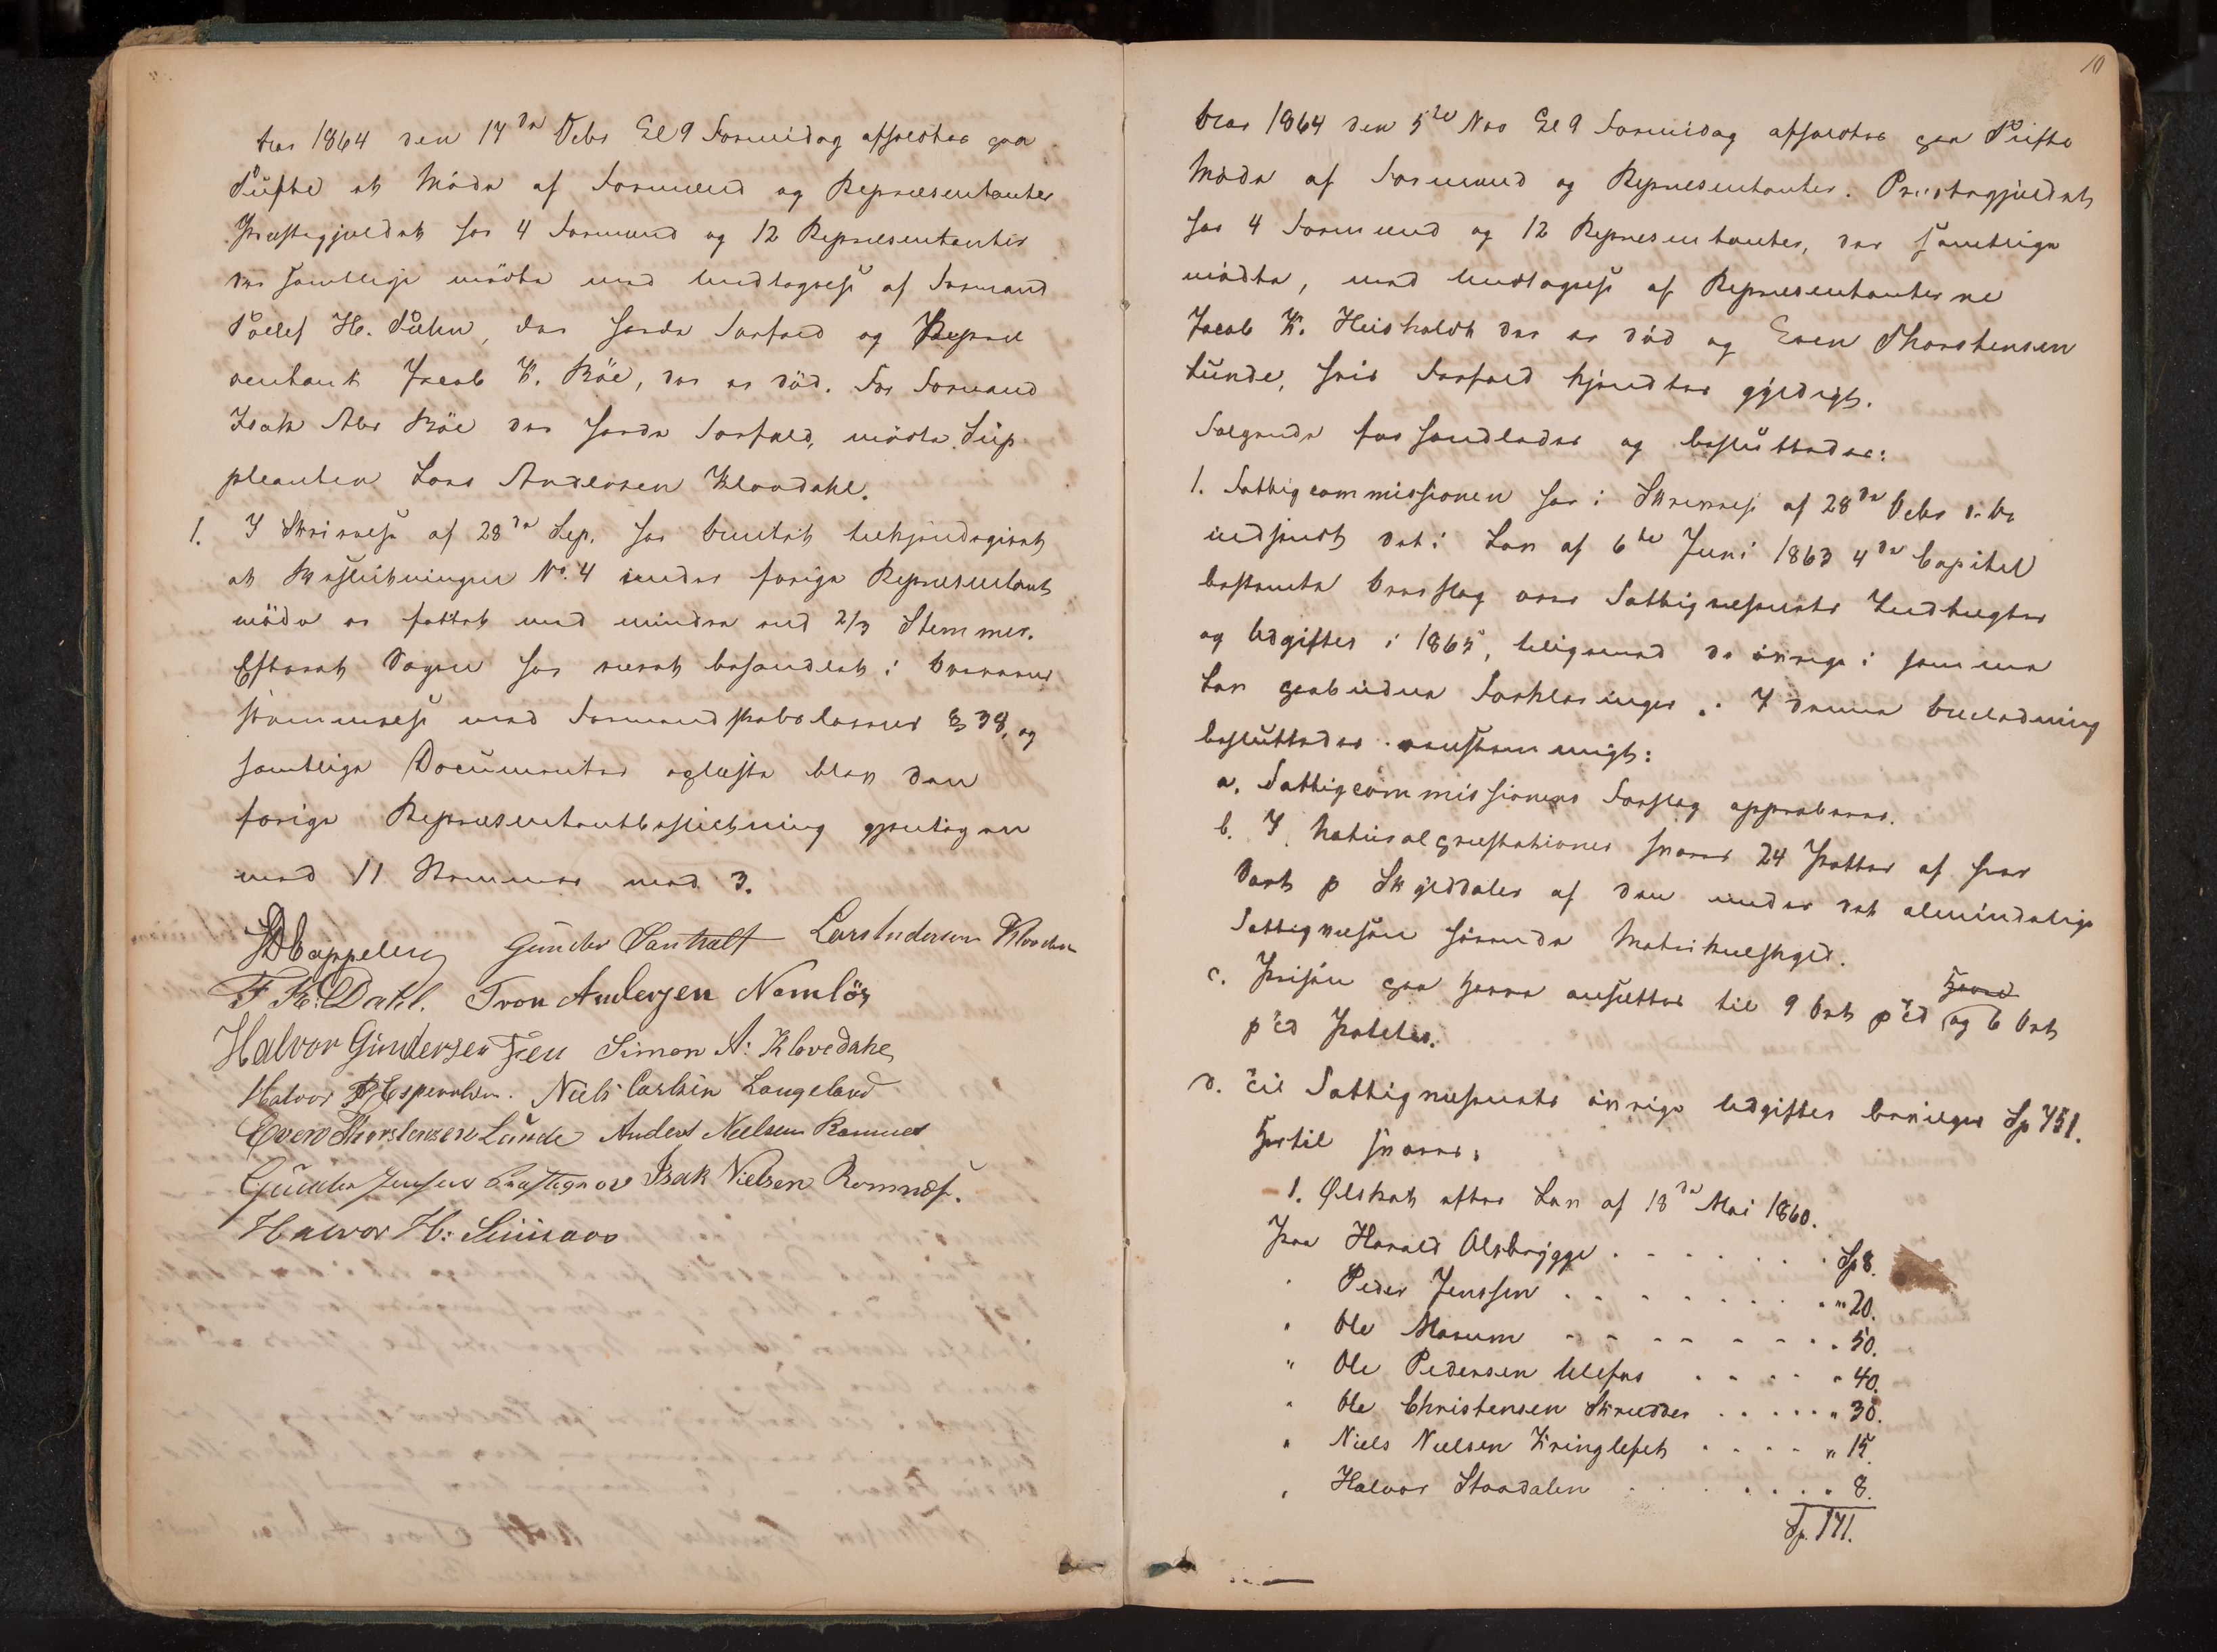 Aar 1864 den 14de Octbr Kl 9 Formidag afholdtes paa
Tufte et Møde af Formænd og Repræsentanter
Præstegjeldet har 4 Formænd og 12 Repræsentanter
der samtlige mødte med Undtagelse af Formand
H. der havde Forfald og Repræ
sentant Jacob K. Bøe, der er død. For Formand
Isak Abr Bøe der havde Forfald, mødte Sup
pleanten Lars Andersen Klovdahl.
1. I Skrivelse af 28de Sep. har Amtet tilkjendegivet
at Beslutningen No. 4 under forige Repræsentant
møde er fattet med mindre end 2/3 Stemmer.
Efterat Sagen har været behandlet i Overens
stemmelse med Formandskabslovens § 38, og
samtlige Documenter oplæste blev den
forige Repræsentantbeslutning gjentagen
med 11 Stemmer mod 3.
D Cappelen Gunder Landtalt Lars Anderson Klovdal
F H. Dahl. Tron Andersen Namløs
Halvor Gundersen Fen Simon A: Klovedahl
Halvor Espevolden. Niels Carlsen Langeland
Even Thorstensen Lunde Anders Nielsen Romnes
Gunder Jensen Præstegaar Isak Nielsen Romnæs.
Halvor H:
10
Aar 1864 den 5te Nov Kl 9 Formidag afholdtes paa Tufte
Møde af Formænd og Repræsentanter. Præstegjeldet
har 4 Formænd og 12 Repræsentanter, der samtlige
mødte, med Undtagelse af Repræsentanterne
Jacob K. Heisholdt der er død og Even Thorstensen
Lunde, hvis Forfald kjendtes gyldigt.
Følgende forhandledes og besluttedes:
1. Fattigcommissionen har i Skrivelse af 28de Octbr d. A.
indsendt det i Lov af 6te Juni 1863 4de Capitel
bestemte Overslag over Fattigvæsenets Indtægter
og Udgifter i 1865, tilligemed de øvrige i samme
Lov paabudne Forklaringer. I denne Anledning
besluttedes eenstemmigt:
a. Fattigcommissionens Forslag approberes.
b. I Naturalpræstationer svares 24 Potter af hver
Sort p Skylddaler af den under det almindelige
Fattigvæsen hørende Matrikulskyld.
c. Prisen paa Havre ansættes til 9 Ort p Td og 6 Ort
p Td Poteter.
d. Til Fattigvæsenets øvrige Udgifter bevilges Sp 751.
Hertil svares:
1. Ølskat efter Lov af 18de Mai 1860.
Paa Harald Ulsbrygge . . . . . . . Sp 8.
" Peder Jenssen . . . . . . . . " 20.
" Ole Marum . . . . . . . . " 50.
" Ole Pedersen Ulefos . . . . . " 40.
" Ole Christensen Skrædder . . . . . " 30.
" Niels Nielsen Kringlefet . . . . " 15.
" Halvor Staadalen . . . . . . " 8.
Sp. 171.